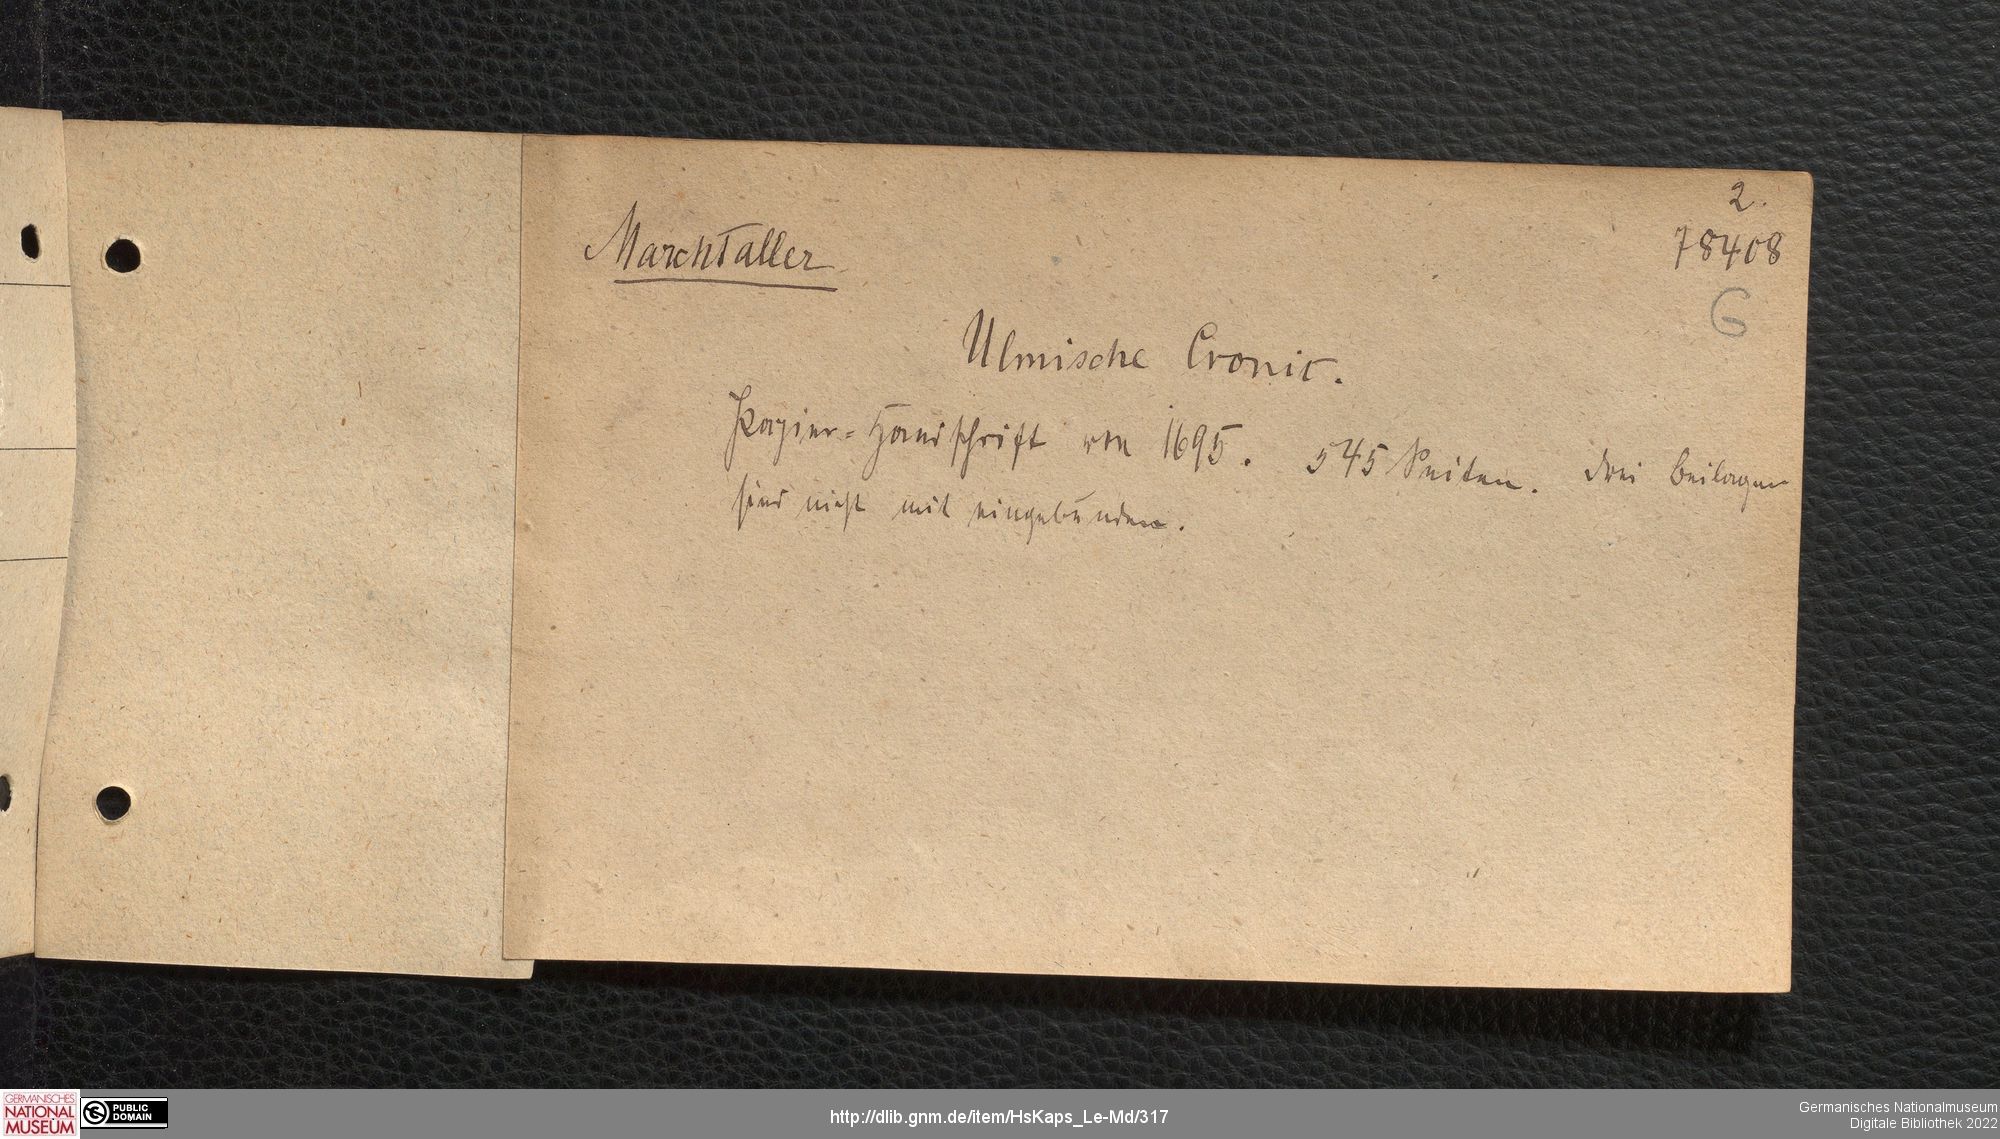 2.
Marchtaller
78408
G
Ulmische Cronic.
Papier-Handschrift von 1695. 545 Seiten. Drei Beilagen
sind nicht mit eingebunden.
GERMANISCHES
NATIONAL
MUSEUM
PUBLIC
DOMAIN
http://dlib.gnm.de/item/HsKaps_Le-Md/317
Germanisches Nationalmuseum
Digitale Bibliothek 2022